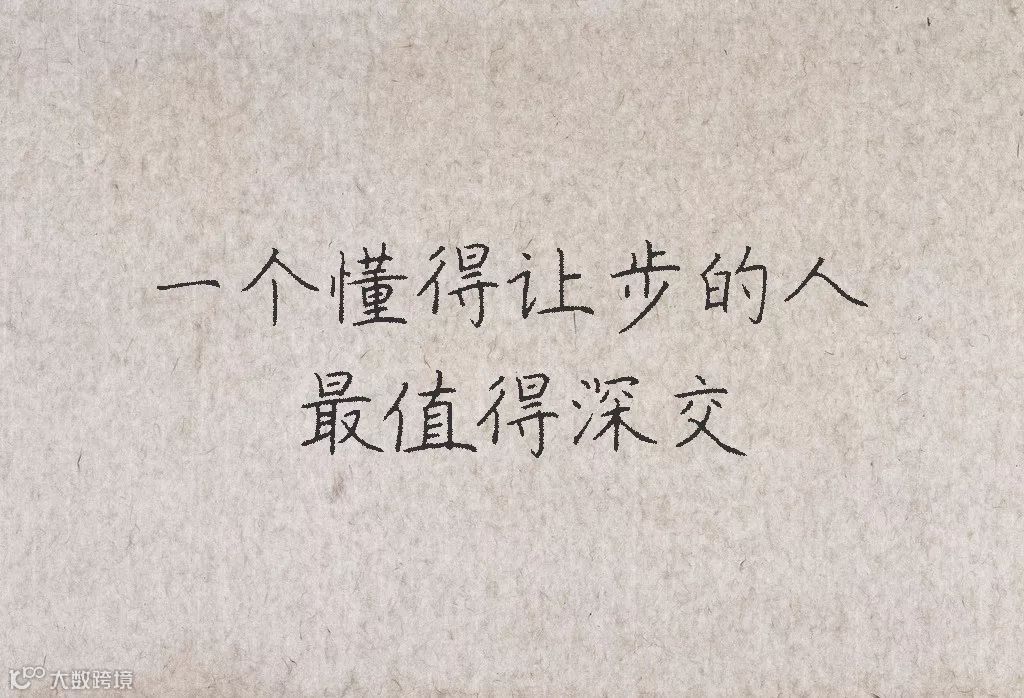 一个懂得让步的人
最值得深交
大数跨境